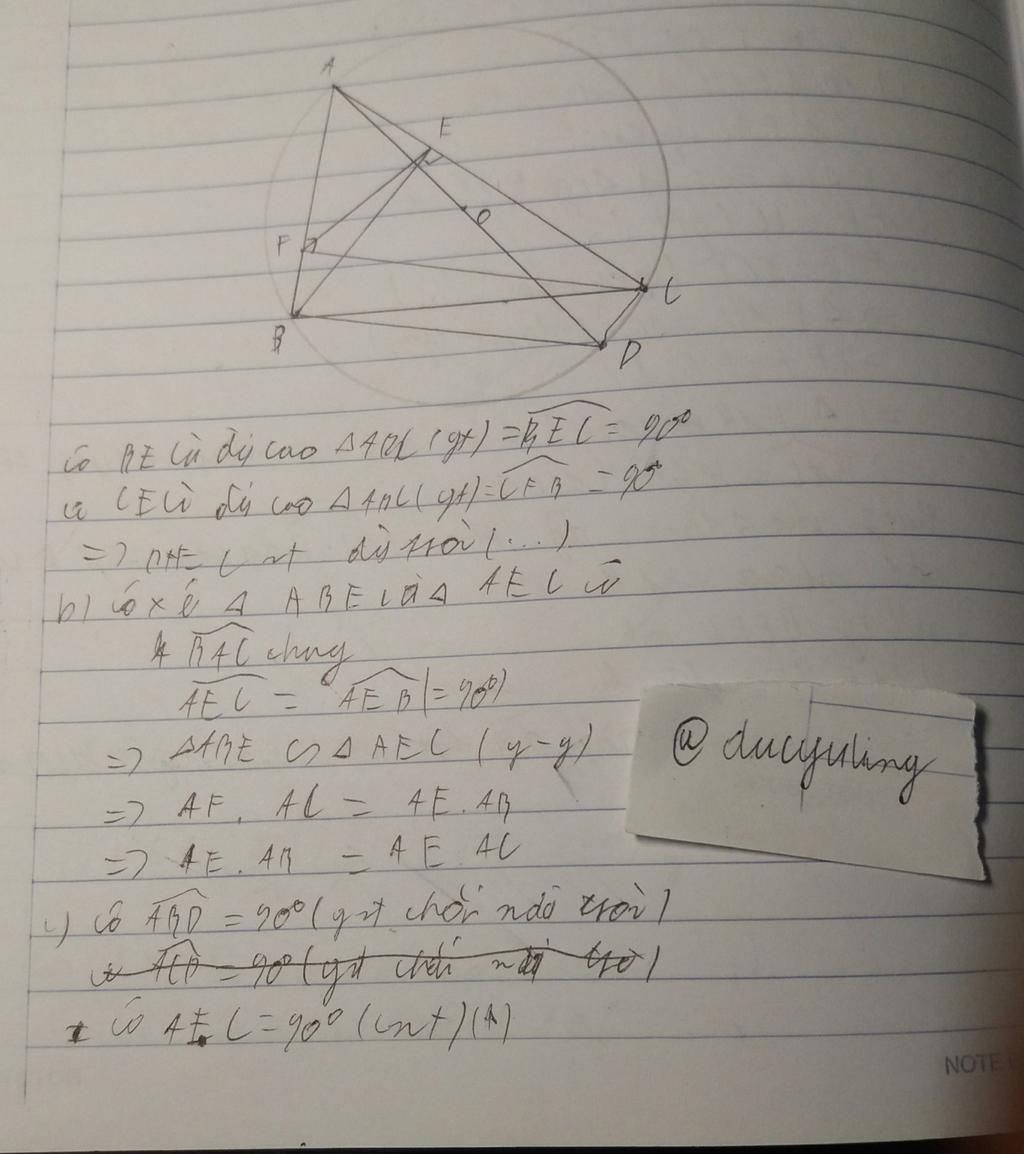 A
E
F
O
B
C
D
có BE là đg cao △ABC (gt) = BEC = 90°
có CF là đg cao △ABC (gt) = CFB = 90°
=> C nt đg tròn (...)
b) Có xé △ ABE và △ AEC có
BAC chung
AEC = AEB (= 90°)
=> △ABE ∽ △ AEC (g-g)
=> AF. AC = AE. AB
=> AE. AB = AE. AC
c) Có ABD = 90° (gnt chắn nửa tròn)
ACD = 90° (gnt chắn nửa tròn)
có AEC = 90° (cnt) (1)
@ ducyuling
NOTE